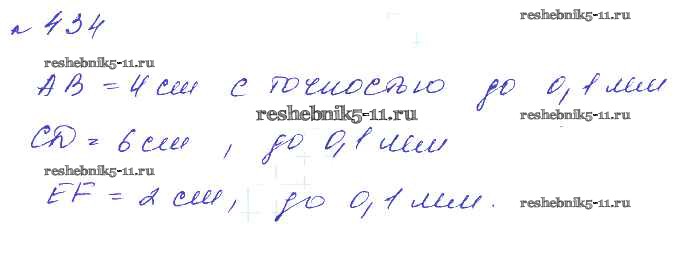 № 434
reshebnik5-11.ru
reshebnik5-11.ru
AB = 4 см с точностью до 0,1 мм
reshebnik5-11.ru
reshebnik5-11.ru
CD = 6 см, до 0,1 мм
reshebnik5-11.ru
EF = 2 см, до 0,1 мм.
reshebnik5-11.ru